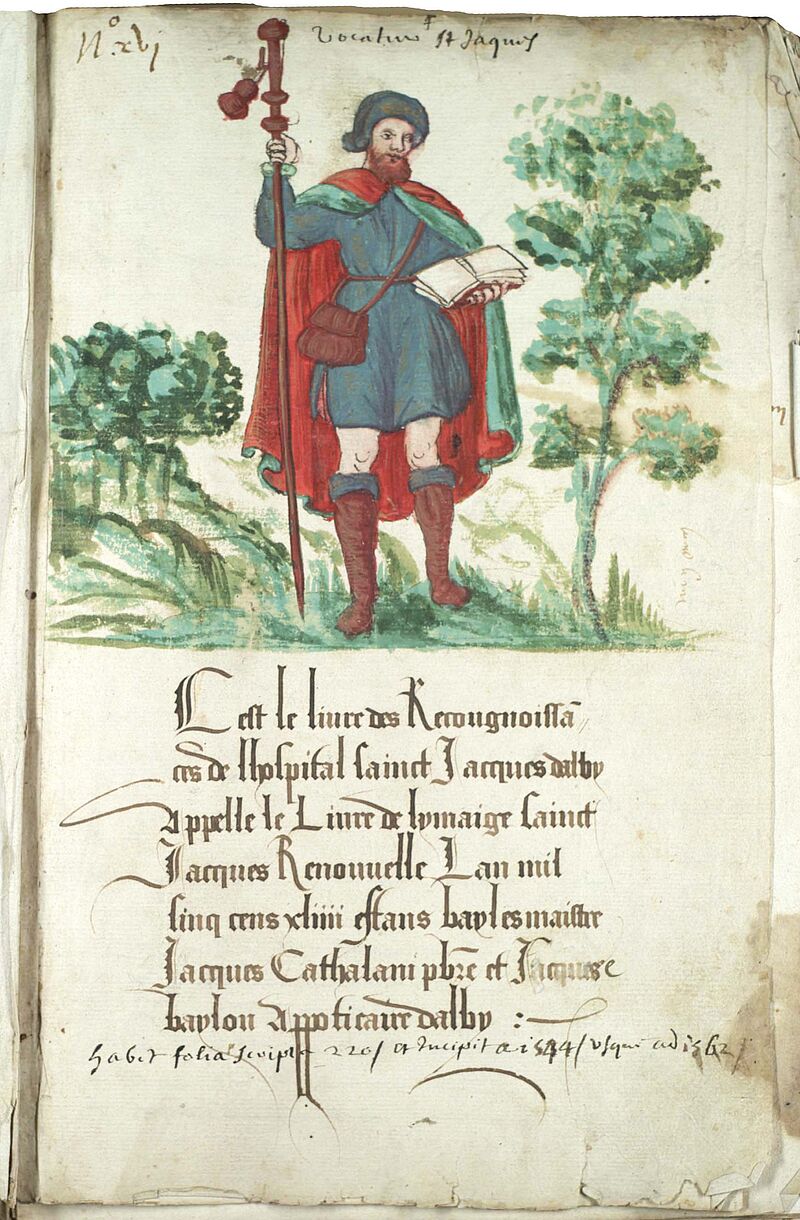 No xvj
Vocatur st Jaques
Cest le liure des Recougnoissā
ces de lhospital sainct Jacques dalby
Appelle le Liure de lymaige sainct
Jacques Renouuelle Lan mil
sinq cens xliiii estans bayles maistre
Jacques Cathalani pbre et Jacques
baylou Appoticaire dalby :
habet folia scripta 220 et Incipit a 1544 usque ad 1562